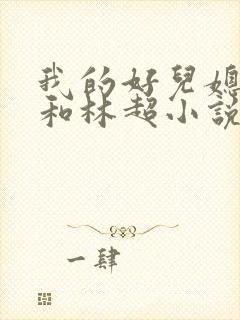 我的好兒媳
和林超小説
一肆